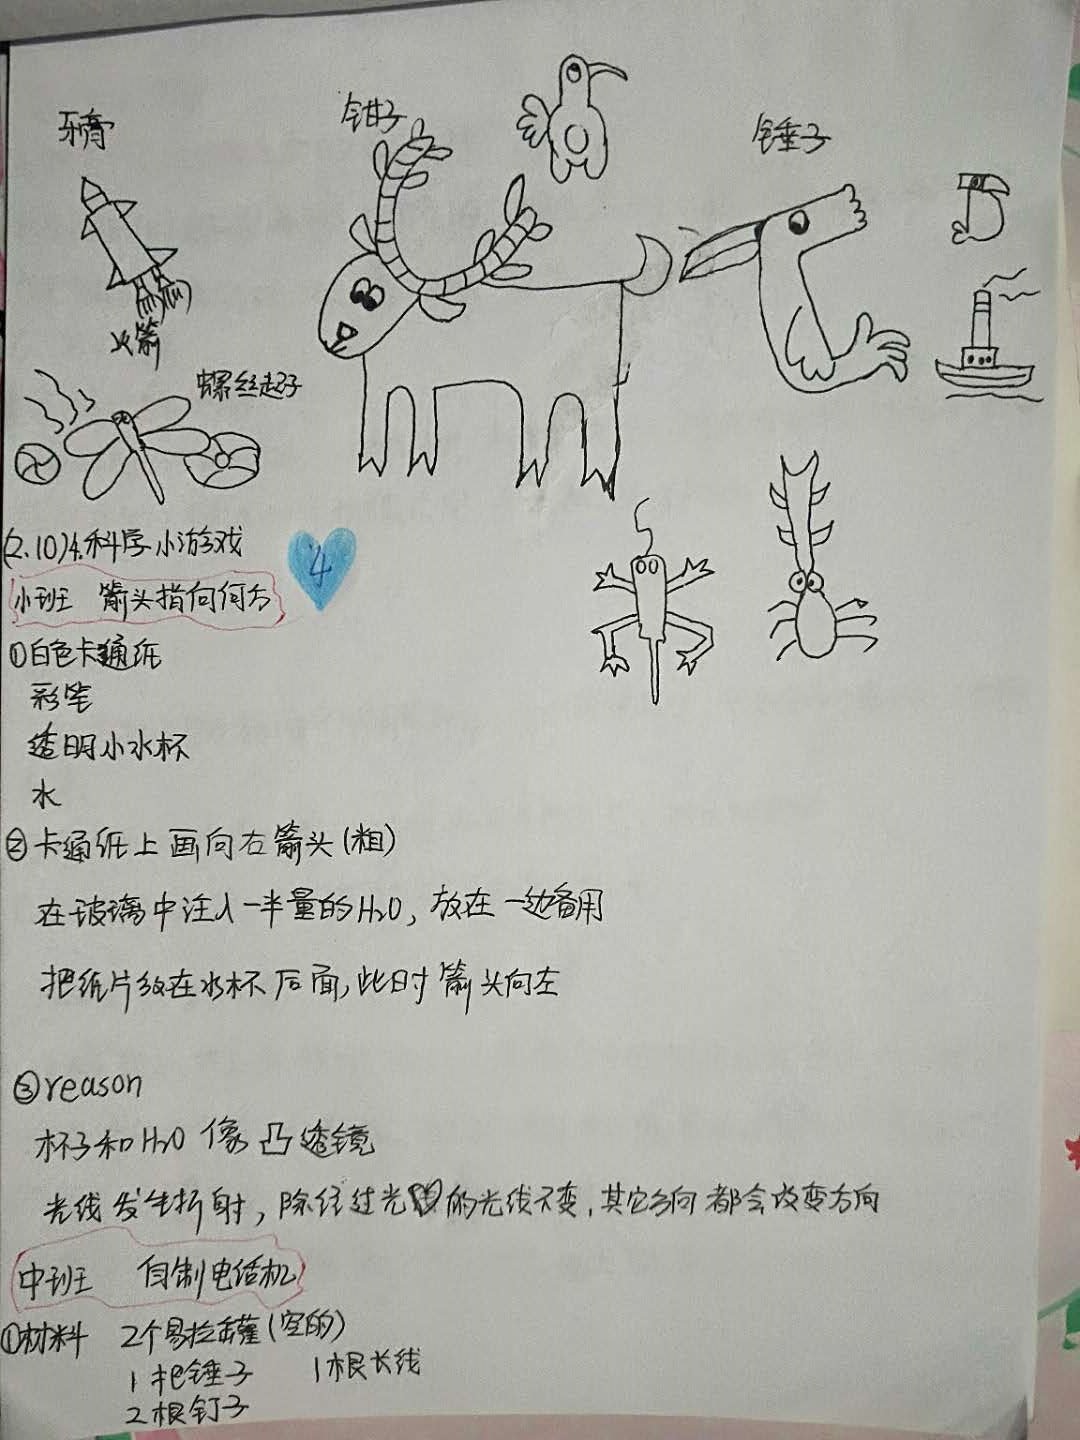 牙膏
钳子
锤子
火箭
螺丝起子
(2.10)4.科学小游戏
4
小班 箭头指向何方
①白色卡通纸
彩笔
透明小水杯
水
②卡通纸上画向右箭头(粗)
在玻璃中注入一半量的H2O,放在一边备用
把纸片放在水杯后面,此时箭头向左
③reason
杯子和H2O像凸透镜
光线发生折射,除经过光的光线不变,其它方向都会改变方向
中班 自制电话机
①材料 2个易拉罐(空的)
1把锤子 1根长线
2根钉子